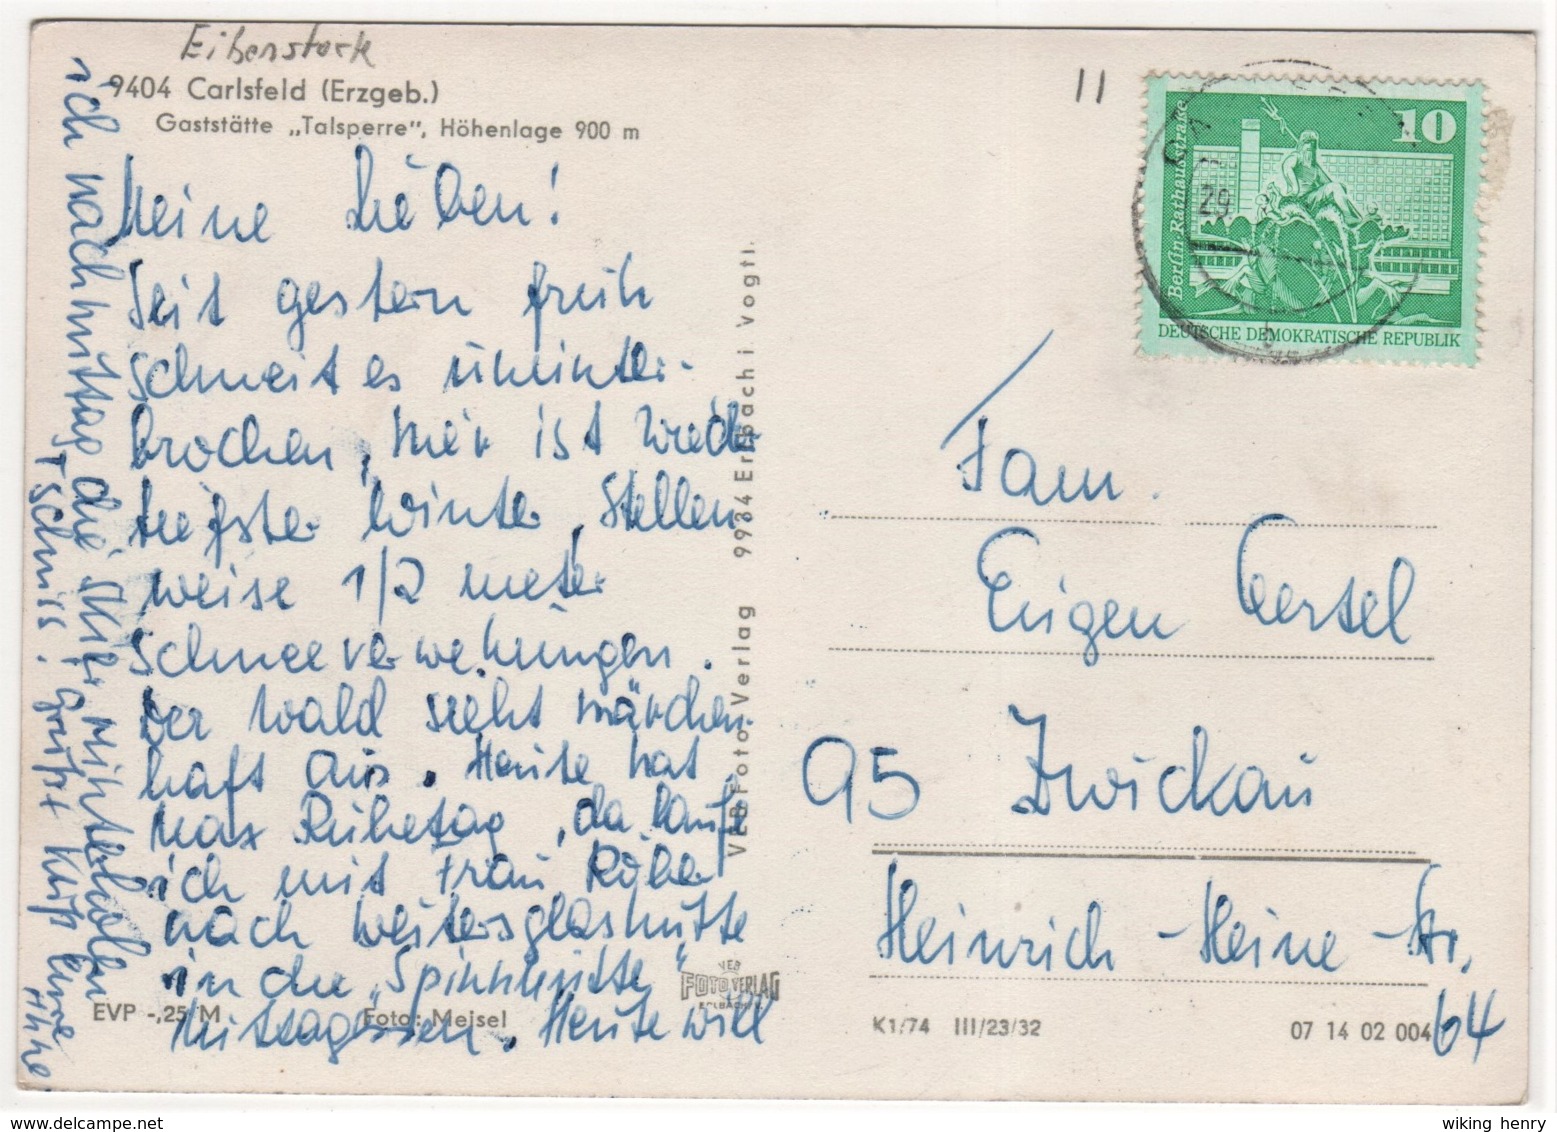 Eibenstock
9404 Carlsfeld (Erzgeb.)
Gaststätte „Talsperre", Höhenlage 900 m
Meine Lieben!
Seit gestern früh
schneit es ununter-
brochen, hier ist wieder
tiefster Winter, stellen
weise 1/2 meter
Schneeverwehungen.
Der Wald sieht märchen-
haft aus. Heute hat
Max Ruhetag, da laufe
ich mit Frau Röher
nach Weitersglashütte
in die „Spinnhütte"
Mittagessen. Heute will
ich nachmittag die Skier mitterholen
Tschüss. Grüßt Küßt Eure
EVP -,25 M
Foto: Meisel
VEB
FOTO VERLAG
ERLBACH V.
VEB Foto-Verlag 9934 Erlbach i Vogtl.
11
10
Berlin Rathausstraße
DEUTSCHE DEMOKRATISCHE REPUBLIK
29
Fam.
Eugen Oertel
95 Zwickau
Heinrich-Heine-Str.
64
K1/74 III/23/32
07 14 02 004
wiking henry